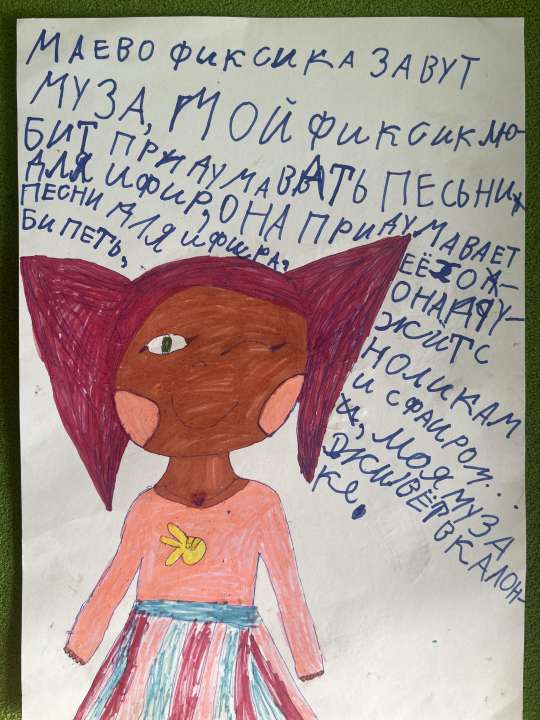 МАЕВО ФИКСИКА ЗАВУТ
МУЗА, МОЙ ФИКСИК ЛЮ-
БИТ ПРИДУМАВВАТЬ ПЕСЬНИ
ДЛЯ ИФИР, ОНА ПРИДУМАВАЕТ
ПЕСНИ ДЛЯ ИФИРА,
БИ ПЕТЬ,
ЕЁ
ОНА
ЖИТ С
НОЛИКАМ
И СФАИРОМ...
МОЯ МУЗА
ЖИВЁТ В КАЛОН-
КЕ.